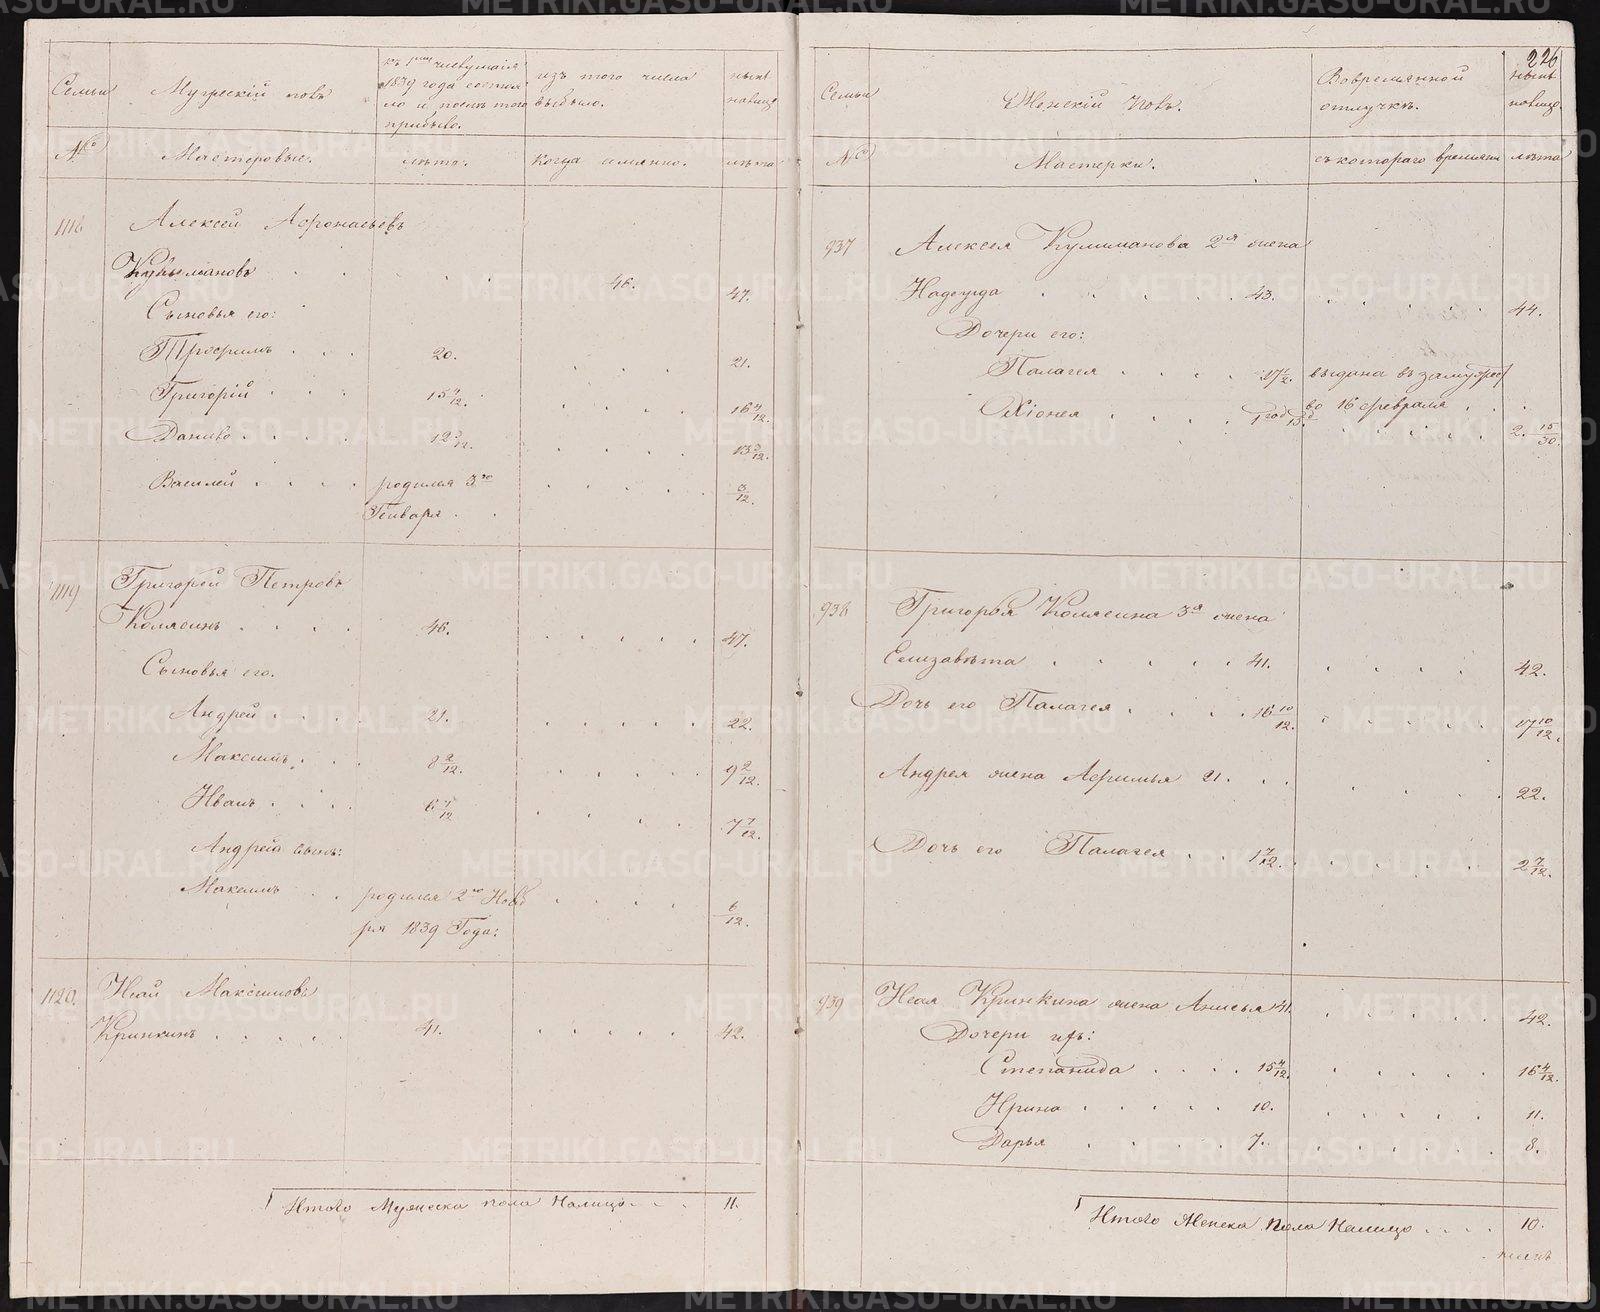 226
Семьи
Мужескій полъ
1839 года состоя
ло и послѣ того
прибыло.
изъ того числа
выбыло.
нынѣ
налицо
№
Мастеровые.
лѣта.
когда имянно.
лѣта
1118
Алексей Афонасьевъ
Кулымановъ . . . . . 46. 47.
Сыновья его:
Трофимъ . . . 20. . . . . 21.
Григорій . . . 15 4/12. . . . . 16 4/12.
Данило . . . . 12 3/12. . . . . 13 3/12.
Василей . . . . родился 3го . . . . . 3/12.
Генваря . .
1119
Григорей Петровъ
Колясинъ . . . . 46. . . . . . 47.
Сыновья его.
Андрей . . . . 21. . . . . . 22.
Максимъ . . . 8 2/12. . . . . . 9 2/12.
Иванъ . . . . 6 7/12 . . . . 7 7/12.
Андрея сынъ:
Максимъ . . родился 2го Нояб . . . . 6/12.
ря 1839 Года:
1120.
Исай Максимовъ
Кринкинъ . . . . . 41. . . . . . 42.
Итого Мужеска пола Налицо . . . 11.
Семьи
Женскій полъ.
Вовремянной
отлучкѣ.
нынѣ
налицо.
№
Мастерки.
съ котораго времяни
лѣта
937
Алексея Кулиманова 2я жена
Надежда . . . . . . 43. . . . . . . 44.
Дочери его:
Палагея . . . . . 17 1/2. выдана въ замужес
во 16 февраля . . .
Хіонея . . . . 1 год 15 . . . . . . 2. 15/30.
938
Григорья Колясина 3я жена
Елизавѣта . . . . . 41. . . . . 42.
Дочь его Палагея . . . . 16 10/12. . . . . . 17 10/12.
Андрея жена Афимья 21. . . . . . . 22.
Дочь его Палагея . . 1 7/12. . . . . . 2 7/12.
939
Исая Кринкина жена Анисья 41. . . . . . 42.
Дочери ихъ:
Степанида . . . . 15 4/12. . . . . . 16 4/12.
Ирина . . . . . 10. . . . . . 11.
Дарья . . . . . 7. . . . . . . 8.
Итого Женска Пола Налицо . . . . 10.